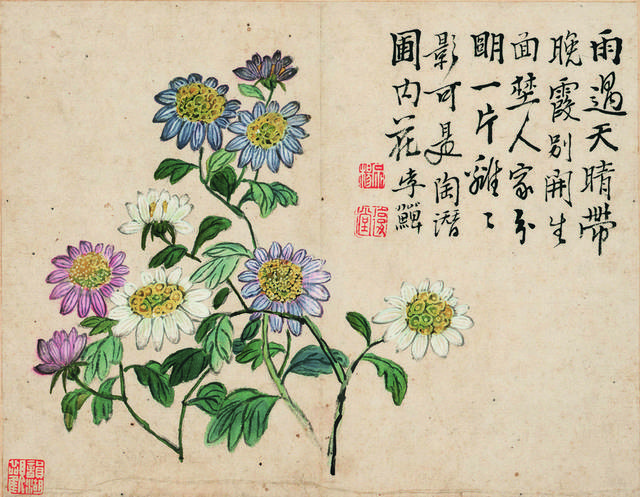 雨過天晴帶
晚霞别開生
面埜人家分
明一片離〻
影可是陶潛
圃内花李鱓